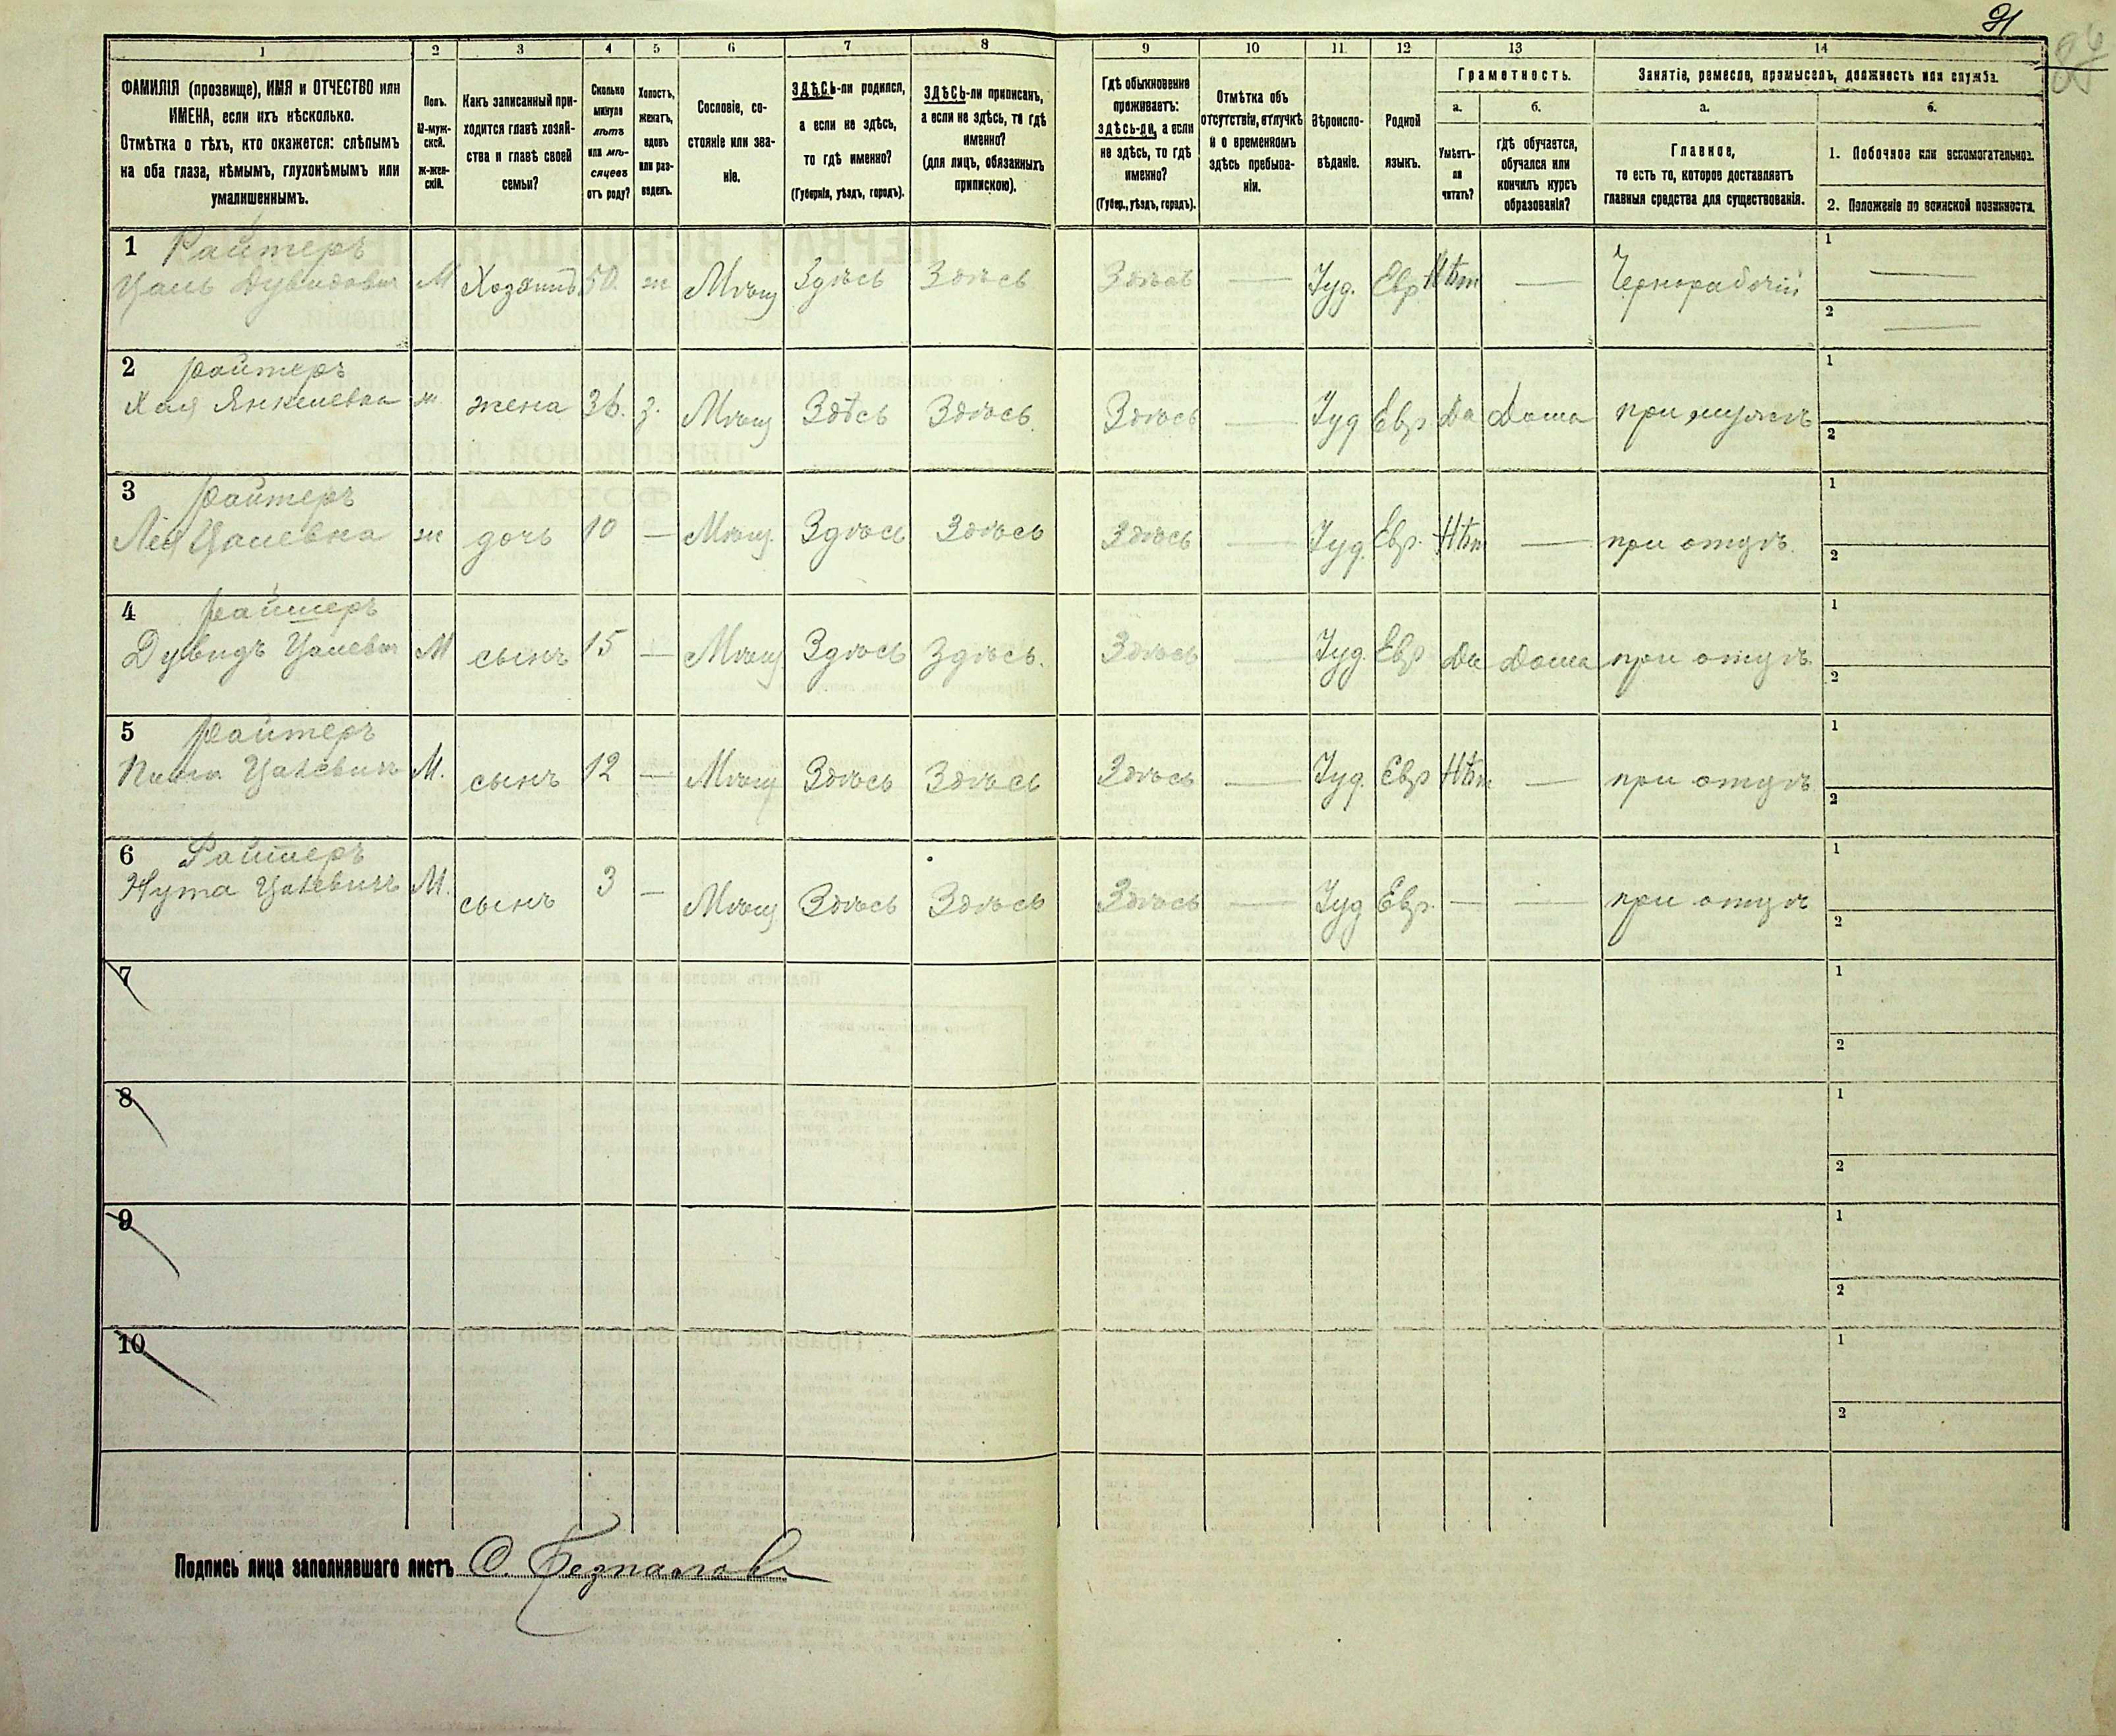 91
96
1 2 3 4 5 6 7 8 9 10 11 12 13 14
ФАМИЛІЯ (прозвище), ИМЯ и ОТЧЕСТВО или
ИМЕНА, если ихъ нѣсколько.
Отмѣтка о тѣхъ, кто окажется: слѣпымъ
на оба глаза, нѣмымъ, глухонѣмымъ или
умалишеннымъ.
Полъ.
М-муж-
ской.
ж-жен-
скій.
Какъ записанный при-
ходится главѣ хозяй-
ства и главѣ своей
семьи?
Сколько
минуло
лѣтъ
или мѣ-
сяцевъ
отъ роду?
Холостъ,
женатъ,
вдовъ
или раз-
веденъ.
Сословіе, со-
стояніе или зва-
ніе.
ЗДѢСЬ-ли родился,
а если не здѣсь,
то гдѣ именно?
(Губернія, уѣздъ, городъ).
ЗДѢСЬ-ли приписанъ,
а если не здѣсь, то гдѣ
именно?
(для лицъ, обязанныхъ
припискою).
Гдѣ обыкновенно
проживаетъ:
здѣсь-ли, а если
не здѣсь, то гдѣ
именно?
(Губер., уѣздъ, городъ).
Отмѣтка объ
отсутствіи, отлучкѣ
и о временномъ
здѣсь пребыва-
ніи.
Вѣроиспо-
вѣданіе.
Родной
языкъ.
Грамотность.
а. б.
Умѣетъ-
ли
читать?
гдѣ обучается,
обучался или
кончилъ курсъ
образованія?
Занятіе, ремесло, промыселъ, должность или служба.
а. б.
Главное,
то есть то, которое доставляетъ
главныя средства для существованія.
1. Побочное или вспомогательное.
2. Положеніе по воинской повинности.
1 Райтеръ
Цаль Дувидовичъ М Хозяинъ 50. ж Мѣщ Здѣсь Здѣсь Здѣсь — Іуд. Евр Нѣт — Чернорабочій 1 — 2 —
2 Райтеръ
Хая Янкелевна ж. жена 36. з. Мѣщ Здѣсь Здѣсь. Здѣсь — Іуд Евр Да Дома при мужѣ 1 2
3 Райтеръ
Лея Цалевна ж дочь 10 — Мѣщ. Здѣсь Здѣсь Здѣсь — Іуд. Евр. Нѣт — при отцѣ. 1 2
4 Райтеръ
Дувидъ Цалевич М сынъ 15 — Мѣщ Здѣсь Здѣсь. Здѣсь — Іуд. Евр Да Дома при отцѣ 1 2
5 Райтеръ
Цалевичъ М. сынъ 12 — Мѣщ Здѣсь Здѣсь Здѣсь — Іуд. Евр Нѣт — при отцѣ 1 2
6 Райтеръ
Нута Цалевичъ М. сынъ 3 — Мѣщ Здѣсь Здѣсь Здѣсь — Іуд Евр. — — при отцѣ 1 2
7 1 2
8 1 2
9 1 2
10 1 2
Подпись лица заполнявшаго листъ О.